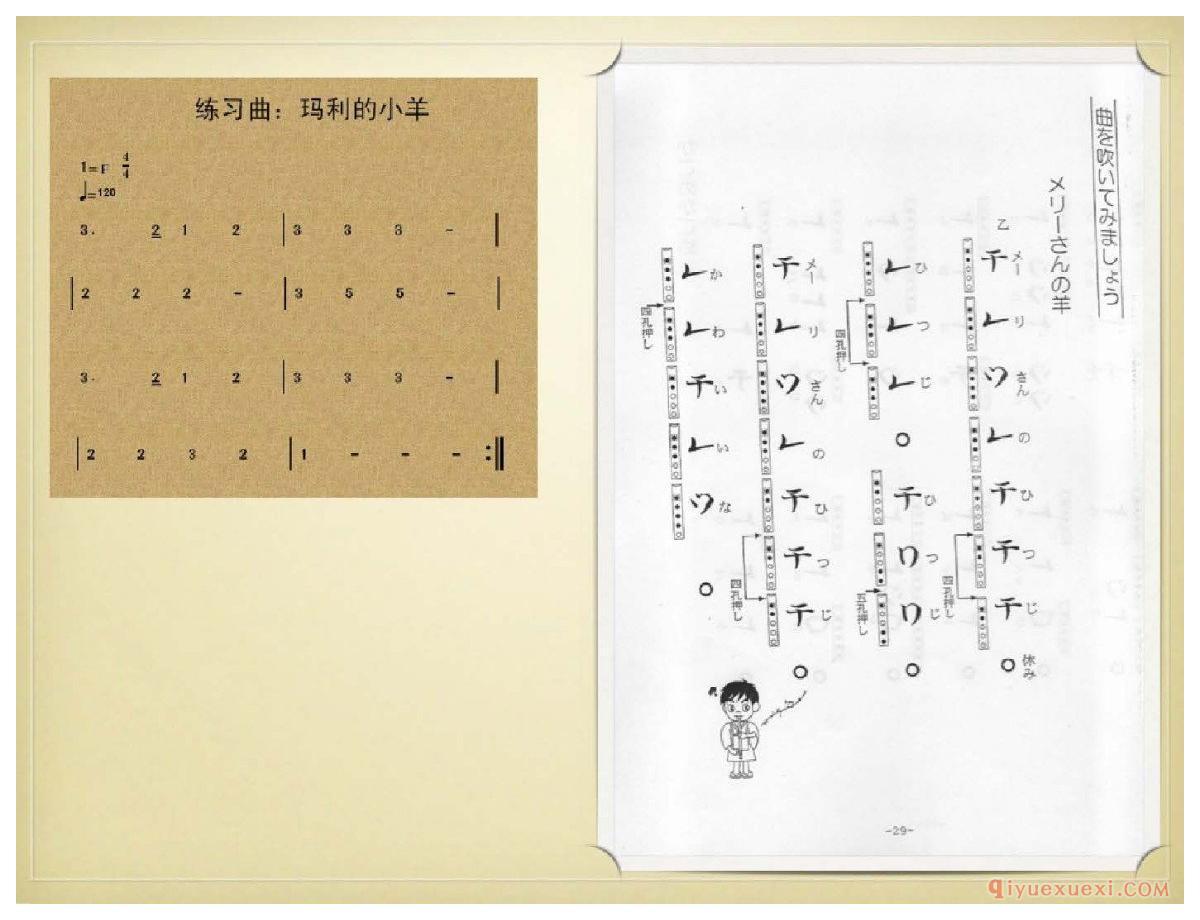 练习曲：玛利的小羊
1=F 4/4
♩=120
3. 2 1 2 | 3 3 3 - |
| 2 2 2 - | 3 5 5 - |
3. 2 1 2 | 3 3 3 - |
| 2 2 3 2 | 1 - - - :‖
曲を吹いてみましょう
メリーさんの羊
乙
チ レ ツ レ チ チ チ ○
メー リ さん の ひ つ じ 休み
四孔押し
レ レ レ ○ チ ワ ワ ○
ひ つ じ ひ つ じ
四孔押し
五孔押し
チ レ ツ レ チ チ チ ○
メー リ さん の ひ つ じ
四孔押し
レ レ チ レ ツ ○
か わ い い な
四孔押し
-29-
Qiyuexuexi.COM